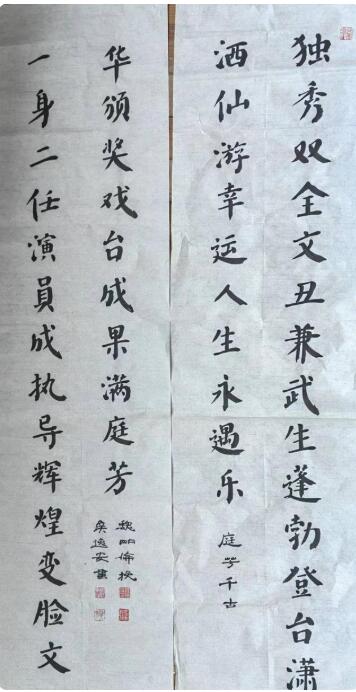 独秀双全文丑兼武生蓬勃登台潇
洒仙游幸运人生永遇乐
庭芳千古
一身二任演員成执导辉煌变脸文
华颁奖戏台成果满庭芳
魏明倫撰
逸安書